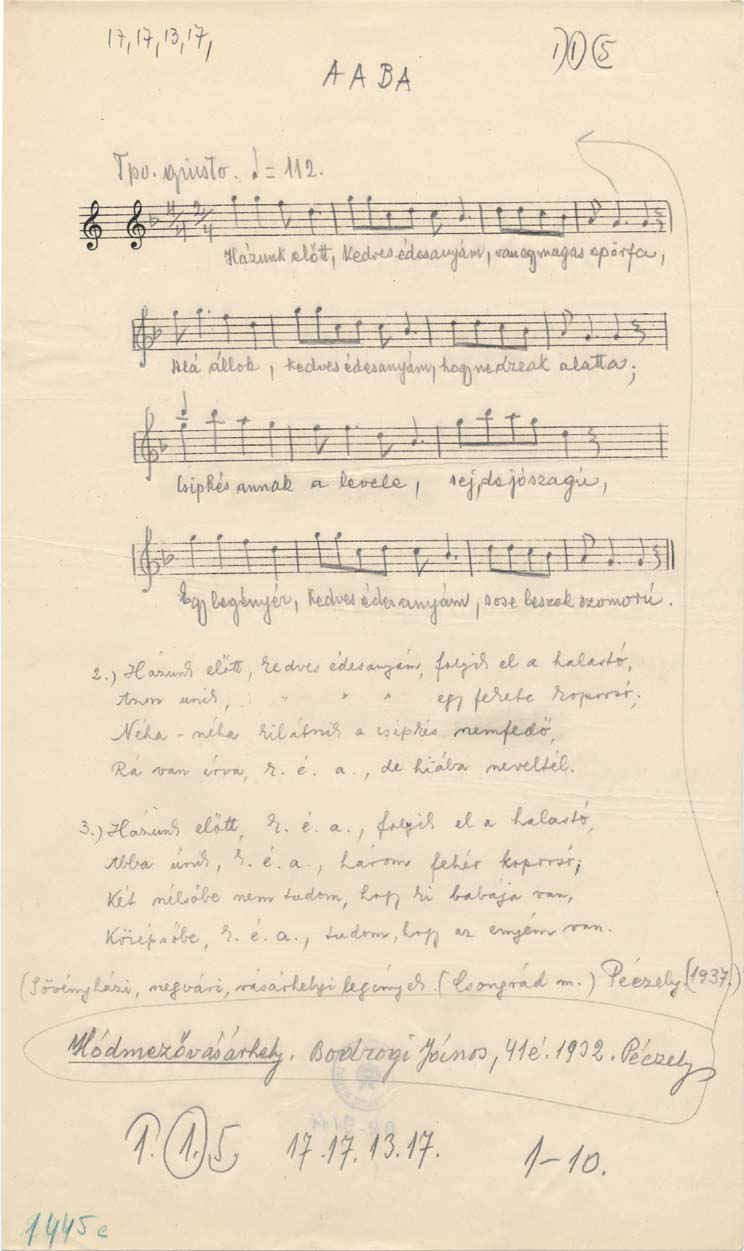 17, 17, 13, 17,
1) 1) 5
A A B A
Tpo. giusto. ♩ = 112.
4/4 2/4
Házunk előtt, Kedves édesanyám, van egy magas epörfa,
Alá állok, kedves édesanyám, hogy ne ázzak alatta;
Csipkés annak a levele, sej, de jószagú,
Egy legényér, Kedves édesanyám, sose leszek szomorú.
2.) Házunk előtt, kedves édesanyám, folyik el a halastó,
Azon úszik, " " " egy fekete koporsó;
Néha-néha kilátszik a csipkés szemfedő,
Rá van írva, k. é. a., de hiába neveltél.
3.) Házunk előtt, k. é. a., folyik el a halastó,
Abba úszik, k. é. a., három fehér koporsó;
Két szélsőbe nem tudom, hogy ki babája van,
Középsőbe, k. é. a., tudom, hogy az enyém van.
(Sövényházi, vásárhelyi legények. (Csongrád m.) Péczely. (1937.)
Hódmezővásárhely. Bodrogi János, 41 é. 1932. Péczely
1. 1. 5. 17.17.13.17. 1-10.
1445c